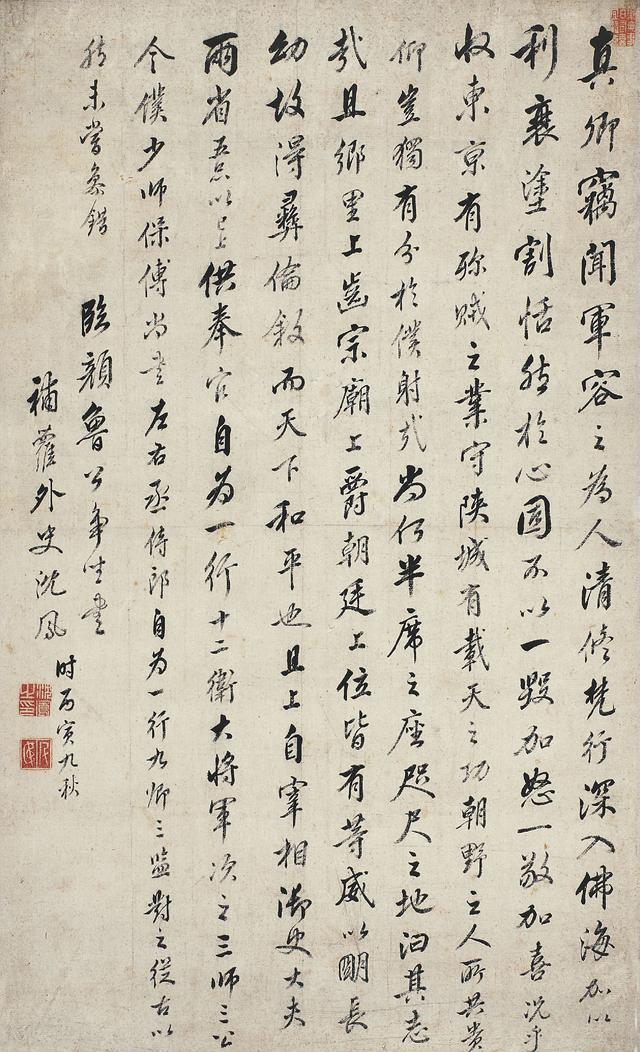 真卿竊聞軍容之為人清修梵行深入佛海加以
利衰塗割恬然於心固不以一毀加怒一敬加喜況乎
收東京有殄賊之業守陝城有載天之功朝野之人所共貴
仰豈獨有分於僕射哉尚何半席之座咫尺之地汩其志
哉且鄉里上齒宗廟上爵朝廷上位皆有等威以明長
幼故得彝倫敘而天下和平也且上自宰相御史大夫
兩省五品以上供奉官自為一行十二衛大將軍次之三師三公
令僕少師保傅尚書左右丞侍郎自為一行九卿三監對之從古以
然未嘗參錯
臨顏魯公爭坐書
補蘿外史沈鳳
時丙寅九秋